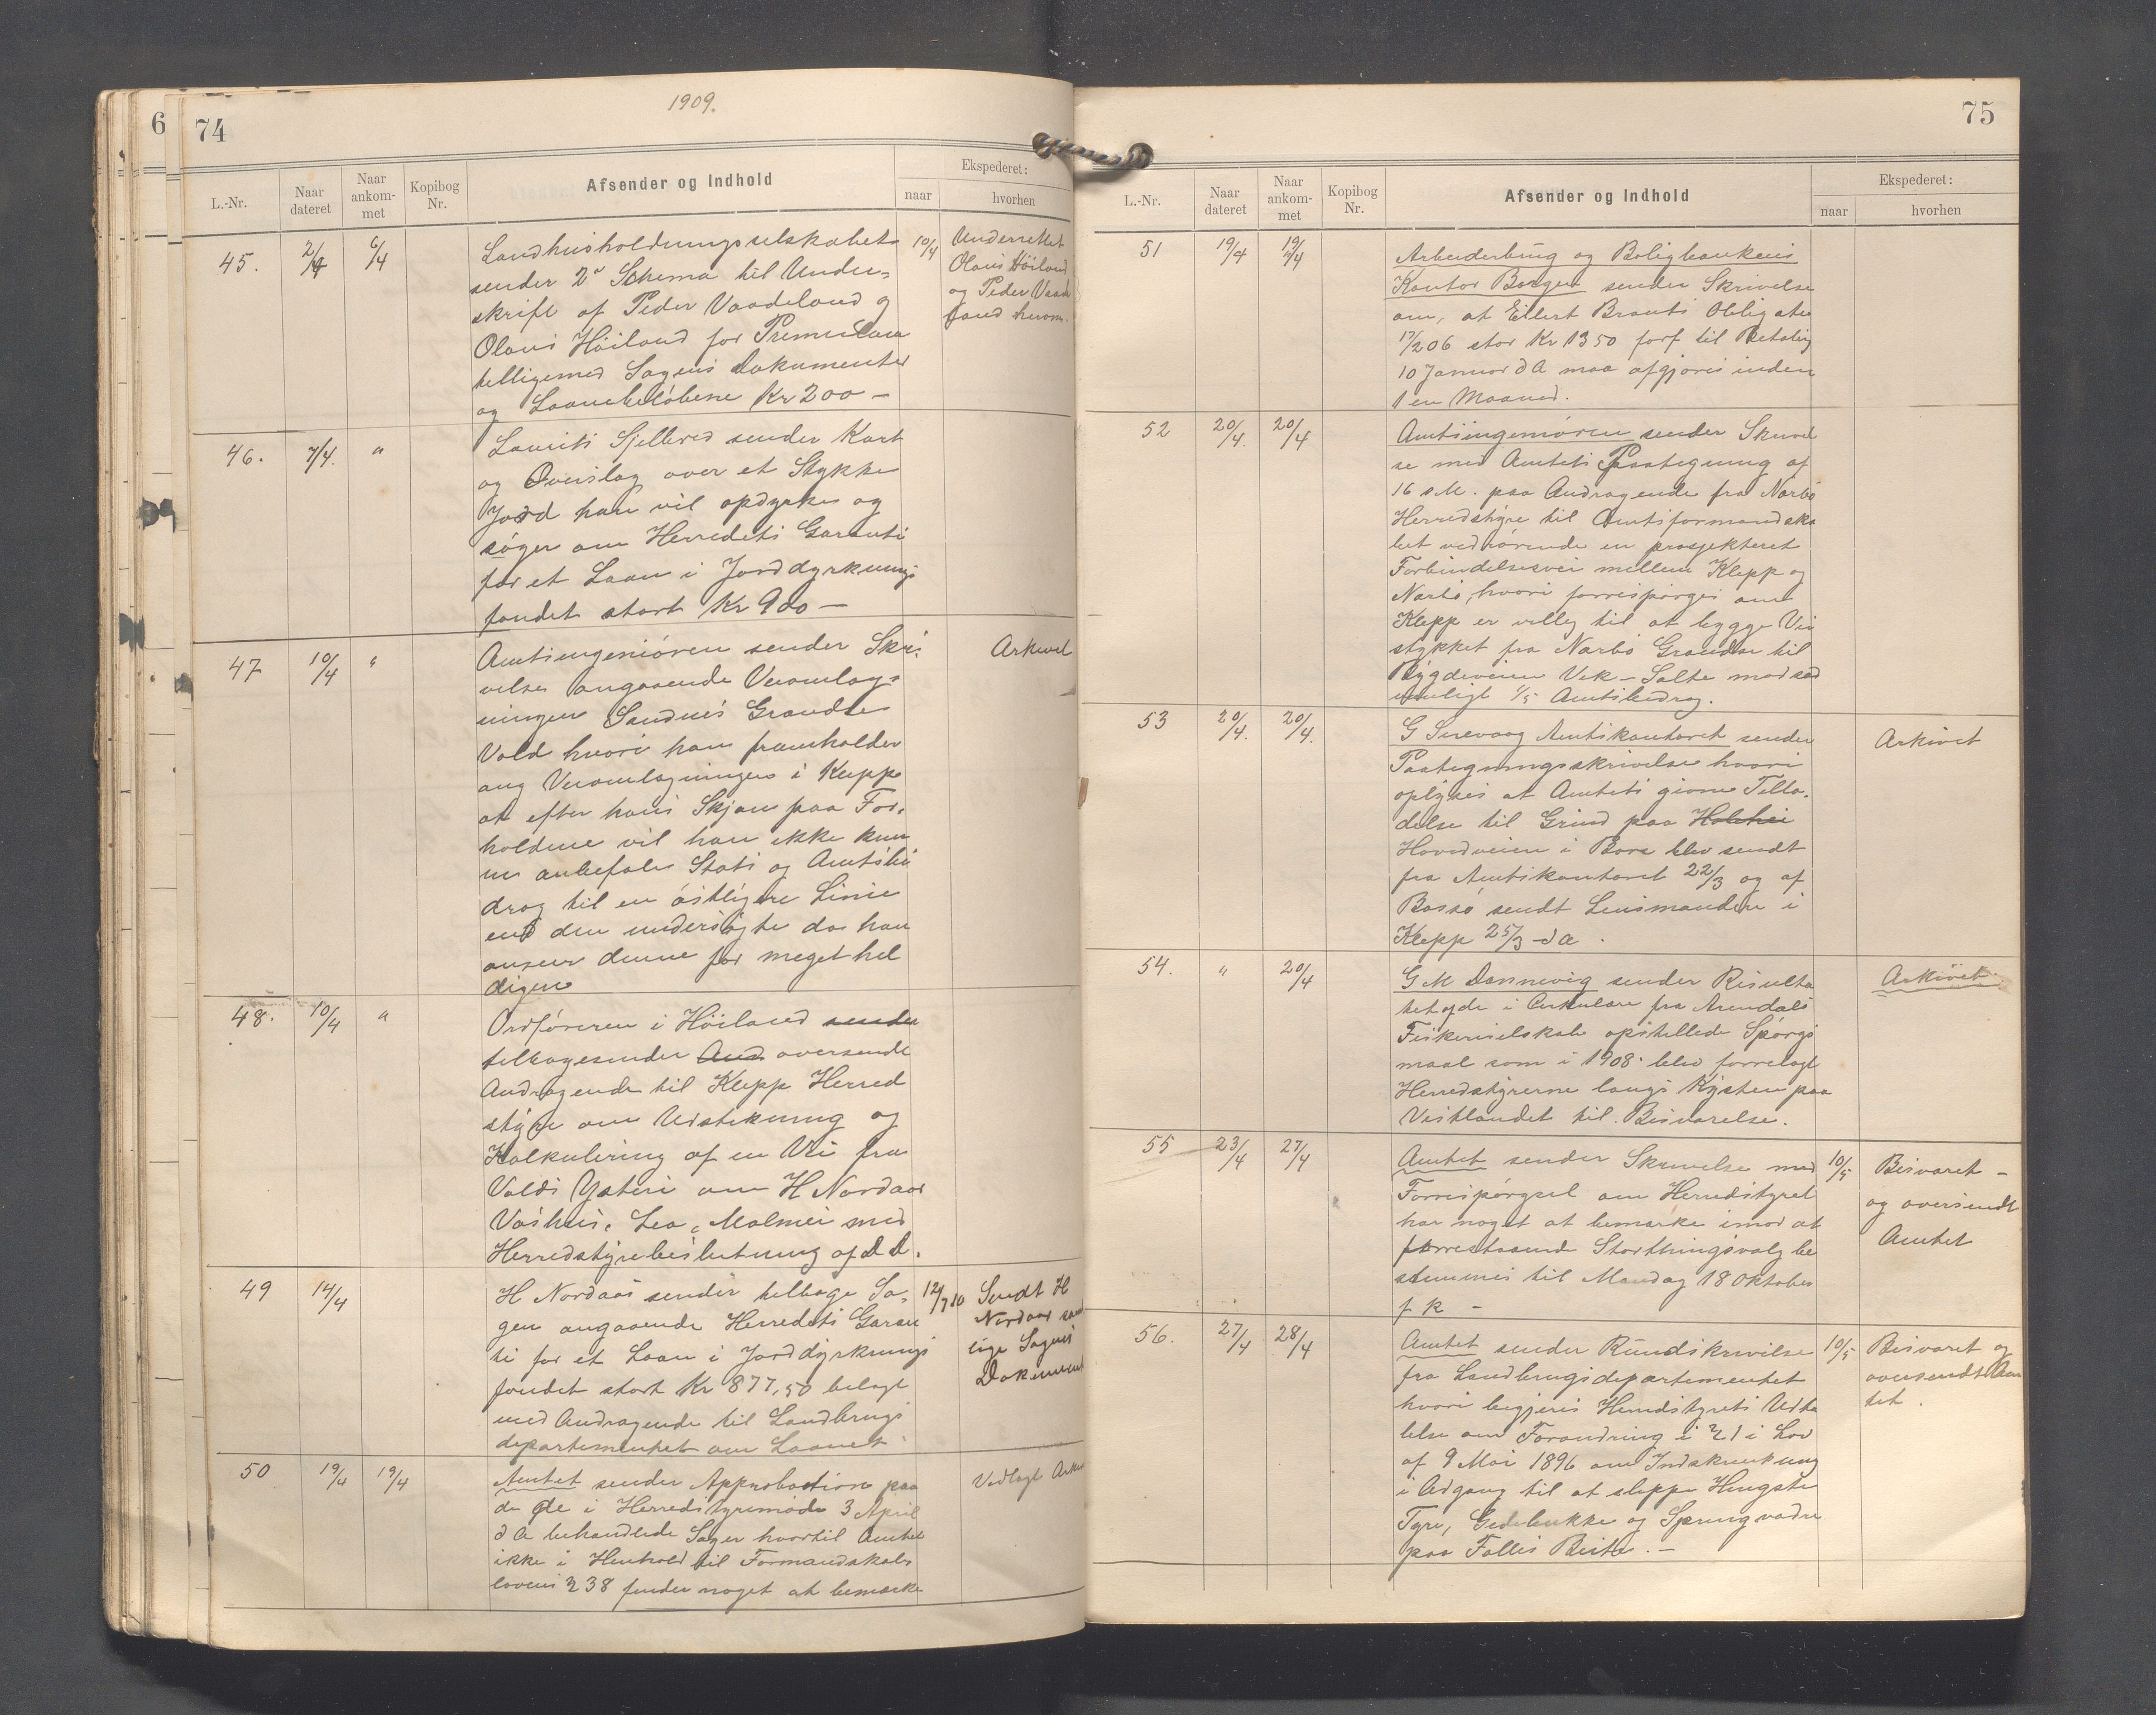 6
74
1909.
L.-Nr.
Naar dateret
Naar ankom-met
Kopibog Nr.
Afsender og Indhold
Ekspederet:
naar
hvorhen
45.
2/4
6/4
Landhusholdningsselskabet
sender 2 Schema til Under-
skrift af Peder Vaadeland og
Olaus Höiland for
tilligemed Sagens Dokumenter
og Laanebelöbene Kr 200 –
10/4
Underrettet
Olaus Höiland
og Peder Vaade
land herom.
46.
7/4.
"
Laurits Sjelbred sender Kart
og Overslag over et Stykke
Jord han vil opdyrke og
söger om Herredets Garanti
for et Laan i Jorddyrknings
fondet stort Kr 900 –
47
10/4
"
Amtsingeniören sender Skri-
velse angaaende Veranlæg-
ningen Sandnes Grændse
Vold hvori han fremholder
ang Veranlægningen i Klepp
at efter hans Skjøn paa For-
holdene vil han ikke kun
ne anbefale Stats og Amtsbi
drag til en östligere Linie
end den undersögte da han
anser denne for meget hel
digere
Arkivet
48.
10/4
"
Ordföreren i Höiland sender
tilbagesender And oversendt
Andragende til Klepp Herred
styre om Udstikning og
Kalkulering af en Vei fra
Volds Ysteri om H Nordaas
Vashus, Lea, Malmei med
Herredstyrebeslutning af D. D.
49
14/4
H Nordaas sender tilbage Sa-
gen angaaende Herredets Garan
ti for et Laan i Jorddyrknings
fondet stort Kr 877,50 belagt
med Andragende til Landbrugs
departementet om Laanet.
12/7 10
Sendt H
Nordaas sam
tige Sagens
Dokument
50
19/4
19/4
Amtet sender Approbation paa
de i Herredstyremöde 3 April
d A behandlede Sager hvortil Amtet
ikke i Henhold til Formandskabs
lovens § 38 finder noget at bemærke
Vedlagt Arkiv
75
L.-Nr.
Naar dateret
Naar ankom-met
Kopibog Nr.
Afsender og Indhold
Ekspederet:
naar
hvorhen
51
19/4
19/4
Arbeiderbrug og Boligbankens
Kontor Bergen sender Skrivelse
om, at Eilert Brauts Obligation
17/2 06 stor Kr 1350 forf til Betaling
10 Januar d A maa afgjöres inden
1 en Maaned.
52
20/4.
20/4
Amtsingeniören sender Skrivel
se med Amtets Paategning af
16 d M. paa Andragende fra Nærbö
Herredstyre til Amtsformandska
bet vedrörende en prosjekteret
Forbindelsesvei mellem Klepp og
Nærbö, hvori forrespörges om
Klepp er villig til at bygge Vei
stykket fra Nærbö Grændse til
Bygdeveien Vik – Salte mod sæd
vanligt 1/5 Amtsbidrag.
53
20/4.
20/4.
G Sirevaag Amtskontoret sender
Paategningsskrivelse hvori
oplyses at Amtets givne Tilla-
delse til Grind paa
Hovedveien i Bore blev sendt
fra Amtskontoret 22/3 og af
Bossö sendt Lensmanden i
Klepp 25/3 – d A.
Arkivet
54.
"
20/4
G M Dannevig sender Resulta
tet af de i Cirkulære fra Arendals
Fiskeriselskab opstillede Spörgs
maal som i 1908 blev forrelagt
Herredstyrerne langs Kysten paa
Vestlandet til Besvarelse.
Arkivet.
55
23/4
27/4
Amtet sender Skrivelse med
Forrespörgsel om Herredstyret
har noget at bemærke imod at
forrestaaende Storthingsvalg be
stemmes til Mandag 18 Oktober
f k –
10/5
Besvaret –
og oversendt
Amtet
56.
27/4
28/4
Amtet sender Rundskrivelse
fra Landbrugsdepartementet
hvori begjæres Herredstyrets Udta
lelse om Forandring i § 1 i Lov
af 9 Mai 1896 om Indskrænkning
i Adgang til at slippe Hingste
Tyre, Gedebukke og Springvædre
paa Fælles Beite. –
10/5
Besvaret og
oversendt Am
tet.